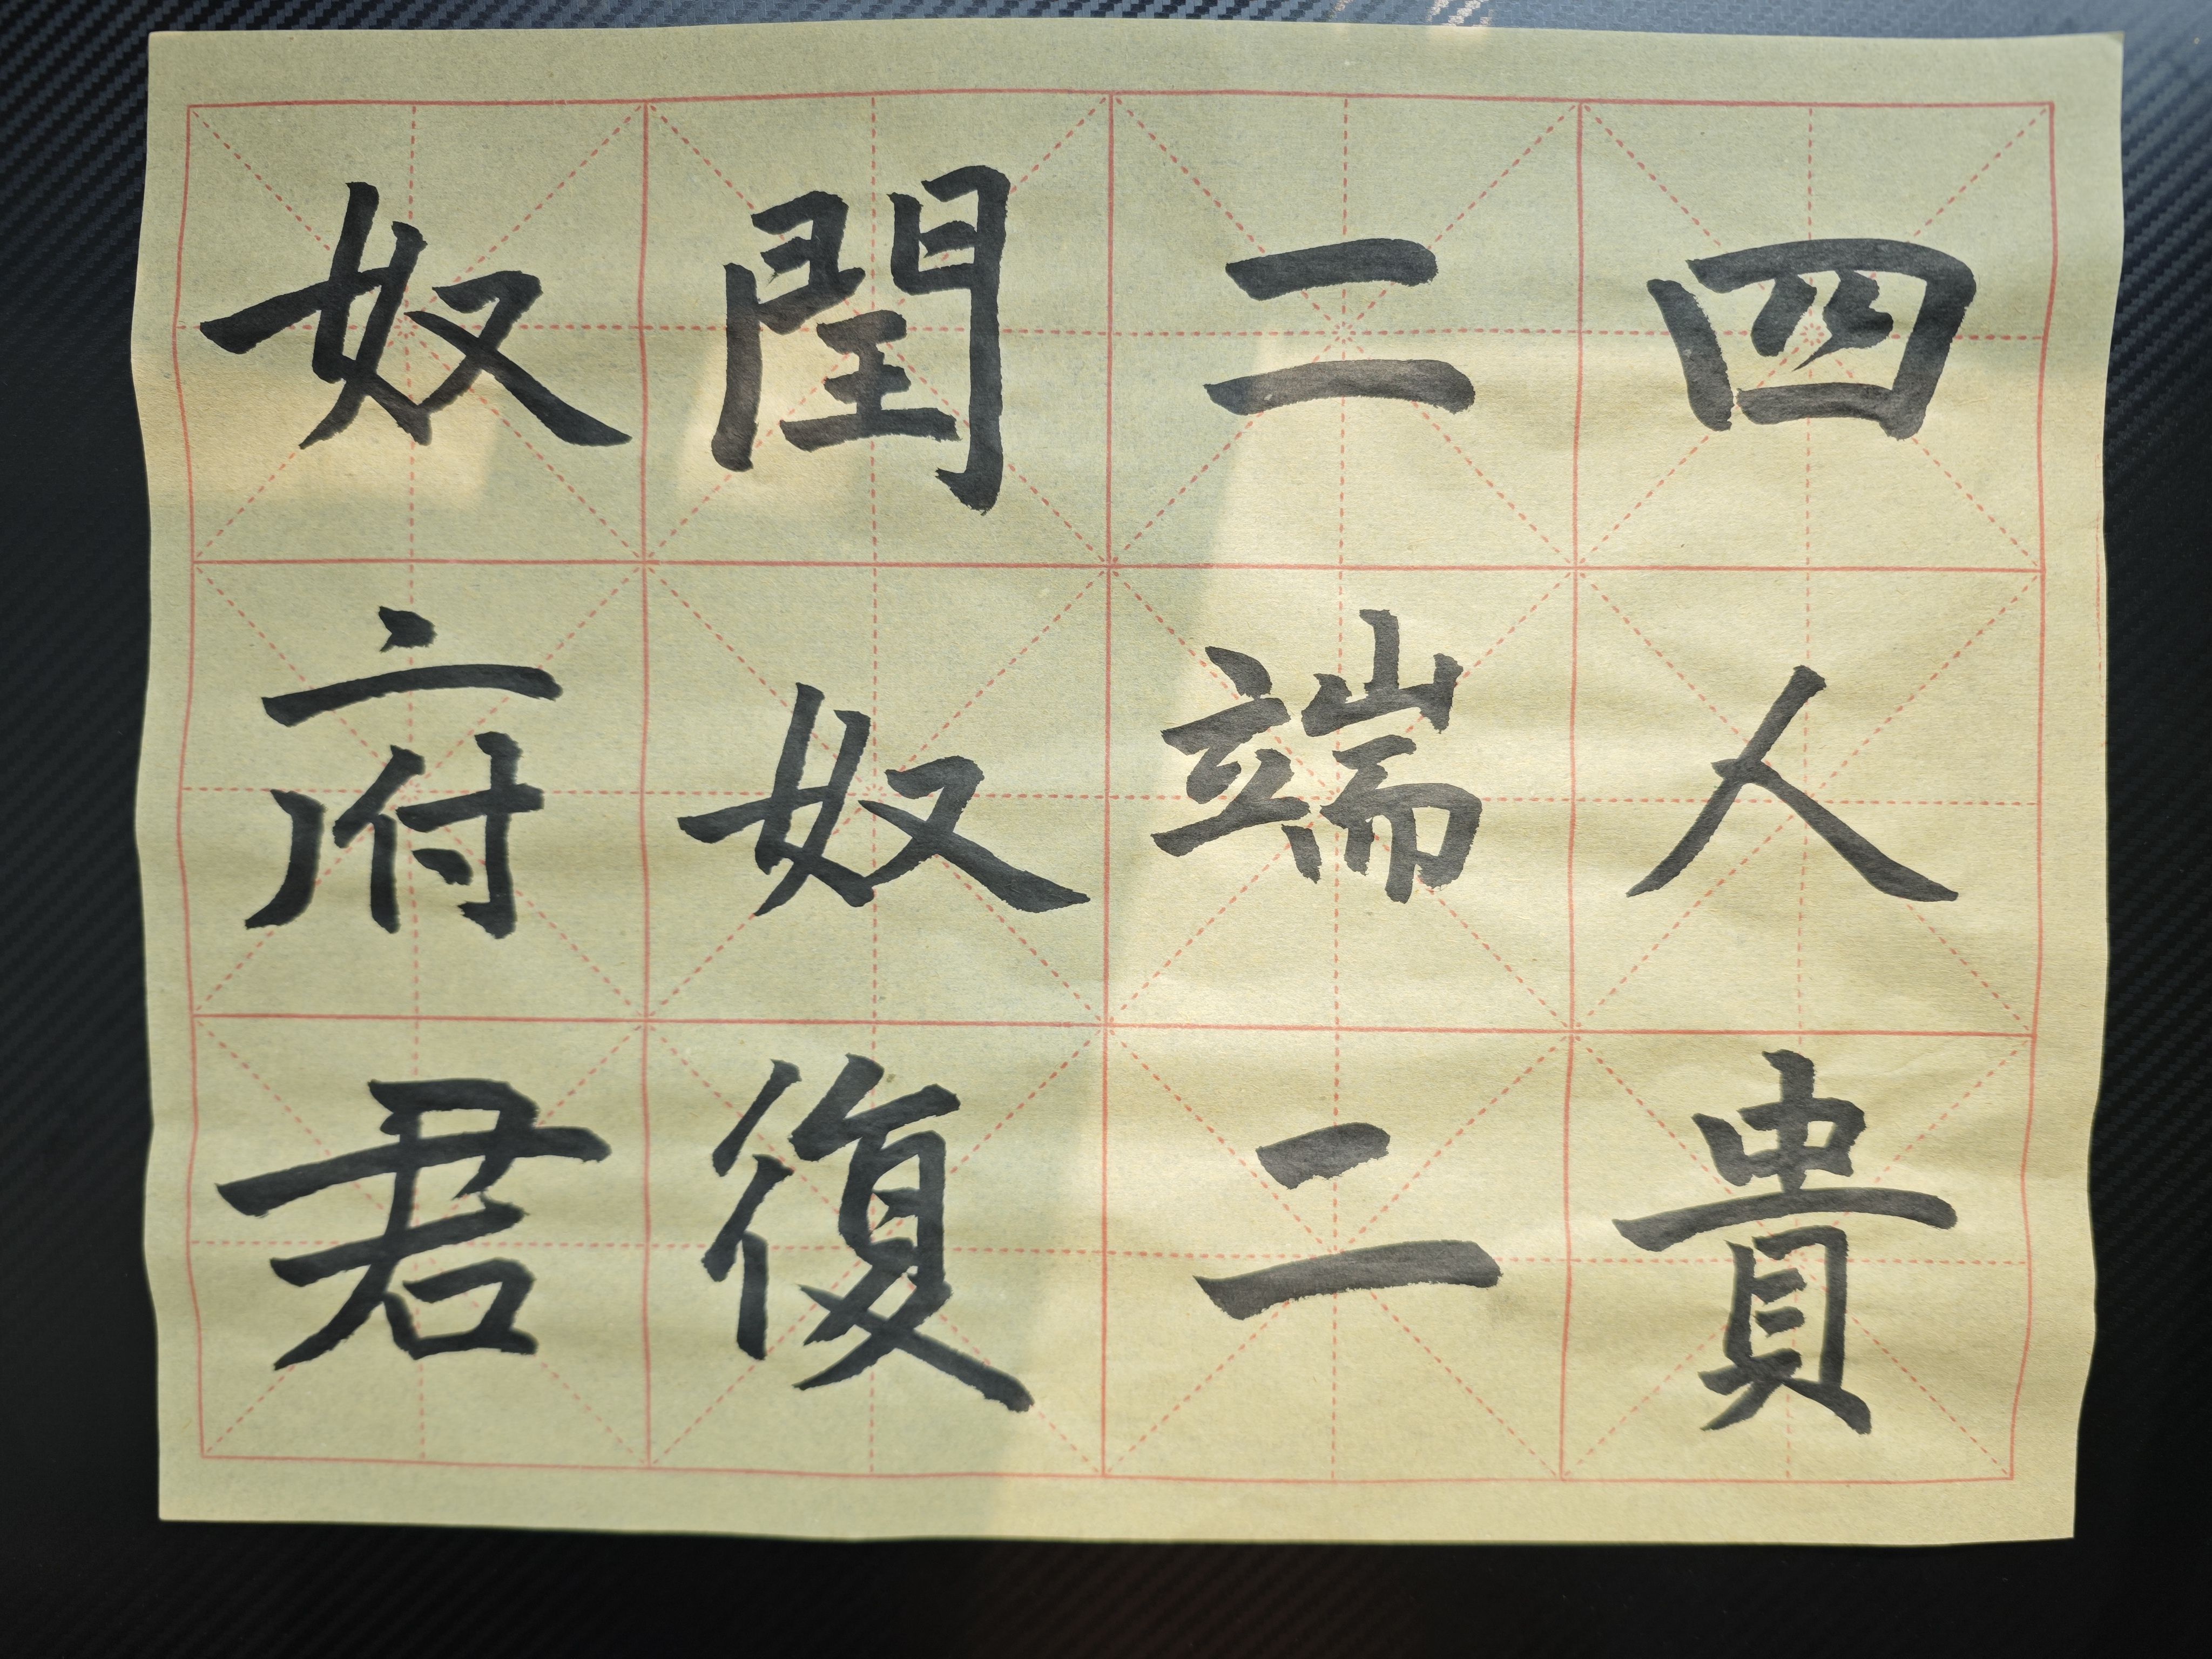 四人貴
二端二
閏奴復
奴府君